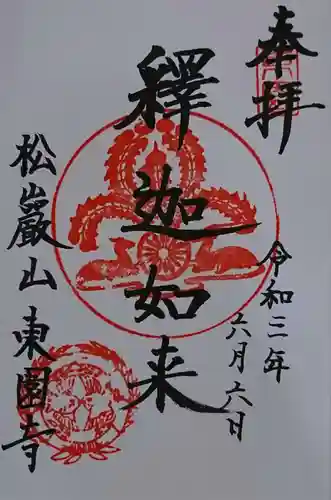 奉拝
釋迦如来
令和三年
六月六日
松巖山東園寺